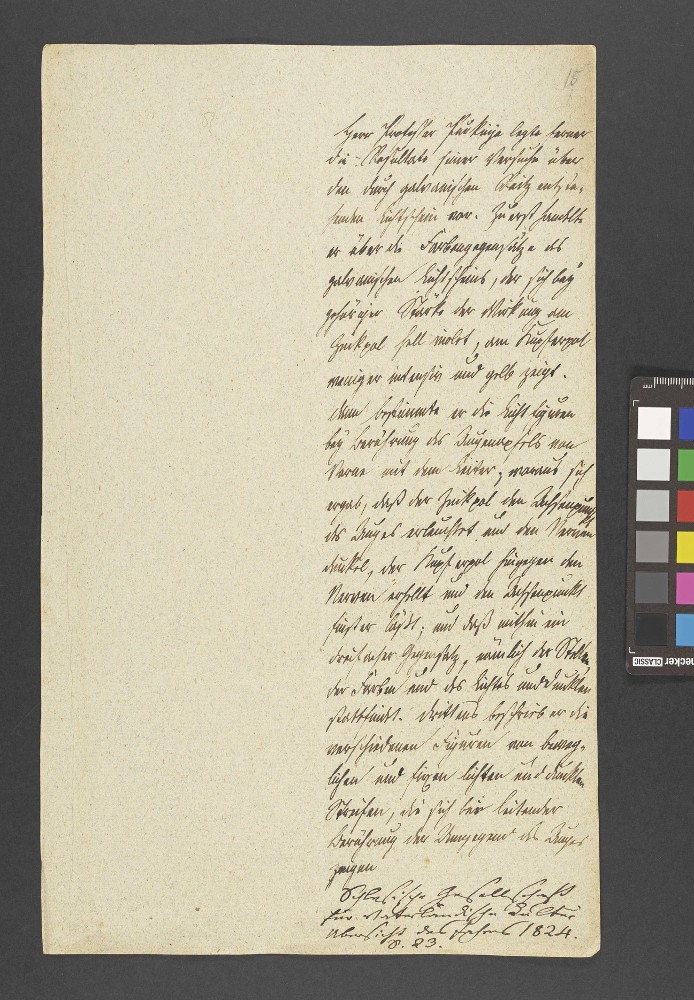 15
Herr Professor Purkinje legte ferner
die Resultate seiner Versuche über
den durch galvanischen Reitz entste-
henden Lichtschein vor. Zuerst handelte
er über die Farbengegensätze des
galvanischen Lichtscheins, der sich bey
gehöriger Stärke der Wirkung am
Zinkpol hell violet, am Kupferpol
weniger intensiv und gelb zeigt.
dann bestimmte er die Lichtfiguren
bey Berührung des Augenapfels von
Vorne mit dem Leiter, woraus sich
ergab, daß der Zinkpol den Achsenpunkt
des Auges erleuchtet und den Nerven
dunkel, der Kupferpol hingegen den
Nerven erhellt und den Achsenpunkt
finster läßt; und daß mithin ein
dreifacher Gegensatz, nämlich der Stellen,
der Farben und des Lichtes und Dunklen
stattfindet. Drittens beschrieb er die
verschiedenen Figuren von beweg-
lichen und fixen lichten und dunklen
Streifen, die sich bei leitender
Berührung der Umgegend des Auges
zeigen
Schlesische Gesellschaft
für vaterländische Kultur
Übersicht des Jahres 1824.
S. 23.